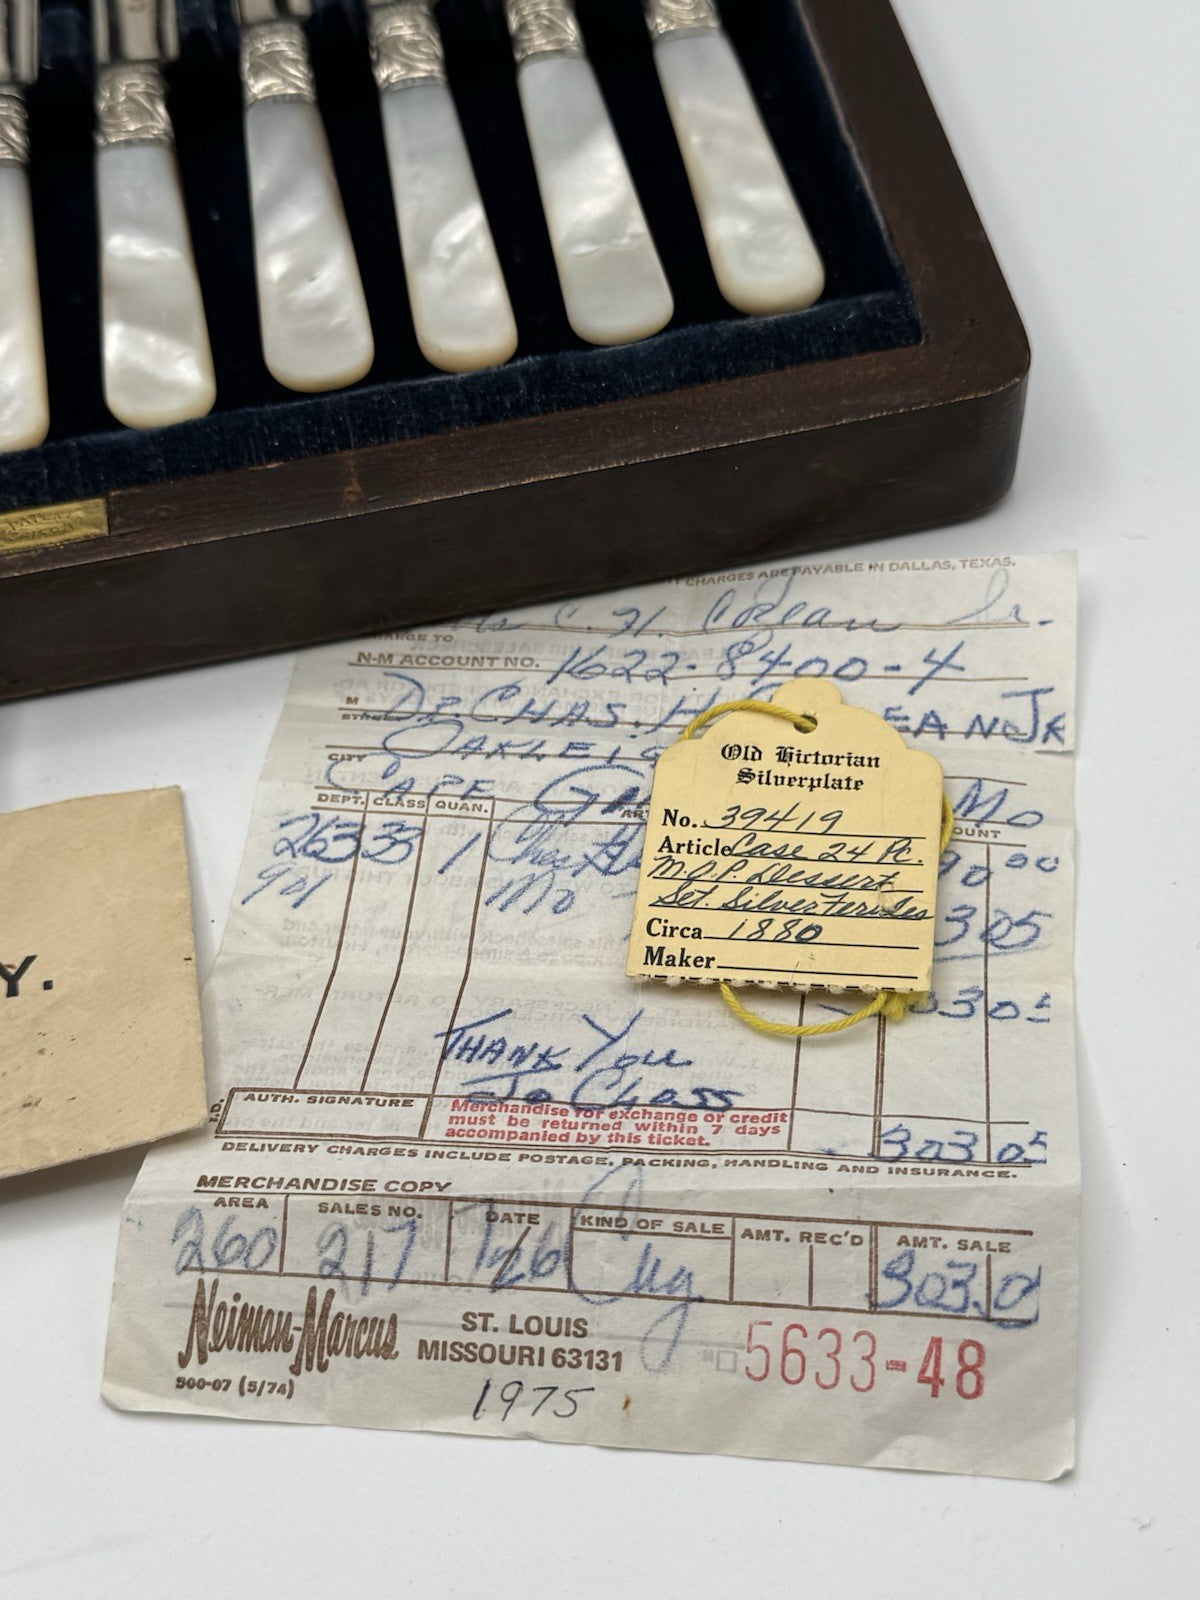 CHARGES ARE PAYABLE IN DALLAS, TEXAS.
C. H. Jr.
CHARGE TO
N-M ACCOUNT NO. 1622-8400-4
M DR. CHAS. H EAN JR
STREET OAKLEIG
CITY CAPE MO
DEPT. CLASS QUAN.
263 33 1 90 00
901 Mo 3 05
303 05
THANK YOU
Jo CLASS
AUTH. SIGNATURE
Merchandise for exchange or credit
must be returned within 7 days
accompanied by this ticket.
303 05
DELIVERY CHARGES INCLUDE POSTAGE, PACKING, HANDLING AND INSURANCE.
MERCHANDISE COPY
AREA SALES NO. DATE KIND OF SALE AMT. REC'D AMT. SALE
260 217 7/26 Chg 303.0
Neiman-Marcus ST. LOUIS
MISSOURI 63131
900-07 (5/74)
5633-48
1975
Old Victorian
Silverplate
No. 39419
Article Case 24 Pc.
M.O.P. Dessert
Set. Silver Ferules
Circa 1880
Maker
Y.